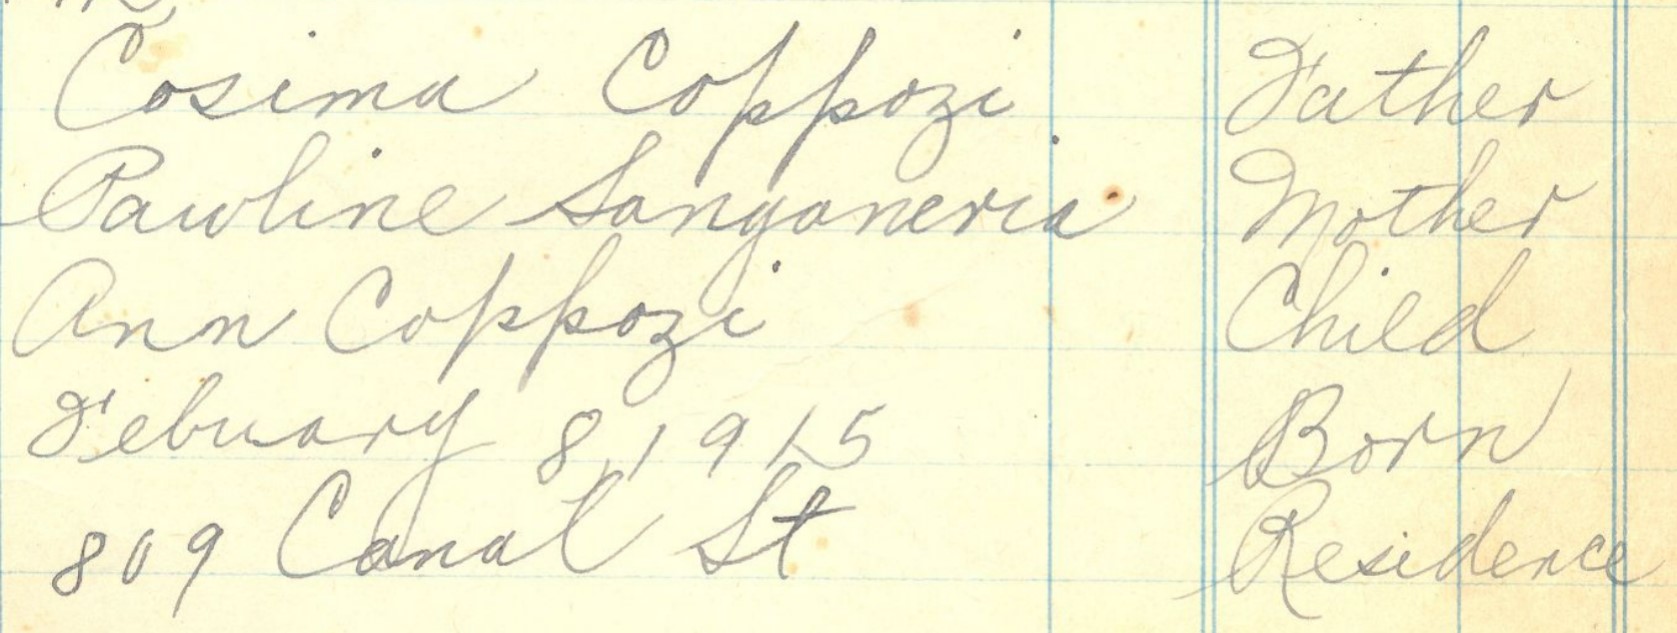 Cosima Coppozi Father
Pauline Sanganeria Mother
Ann Coppozi Child
Febuary 8, 1915 Born
809 Canal St Residence